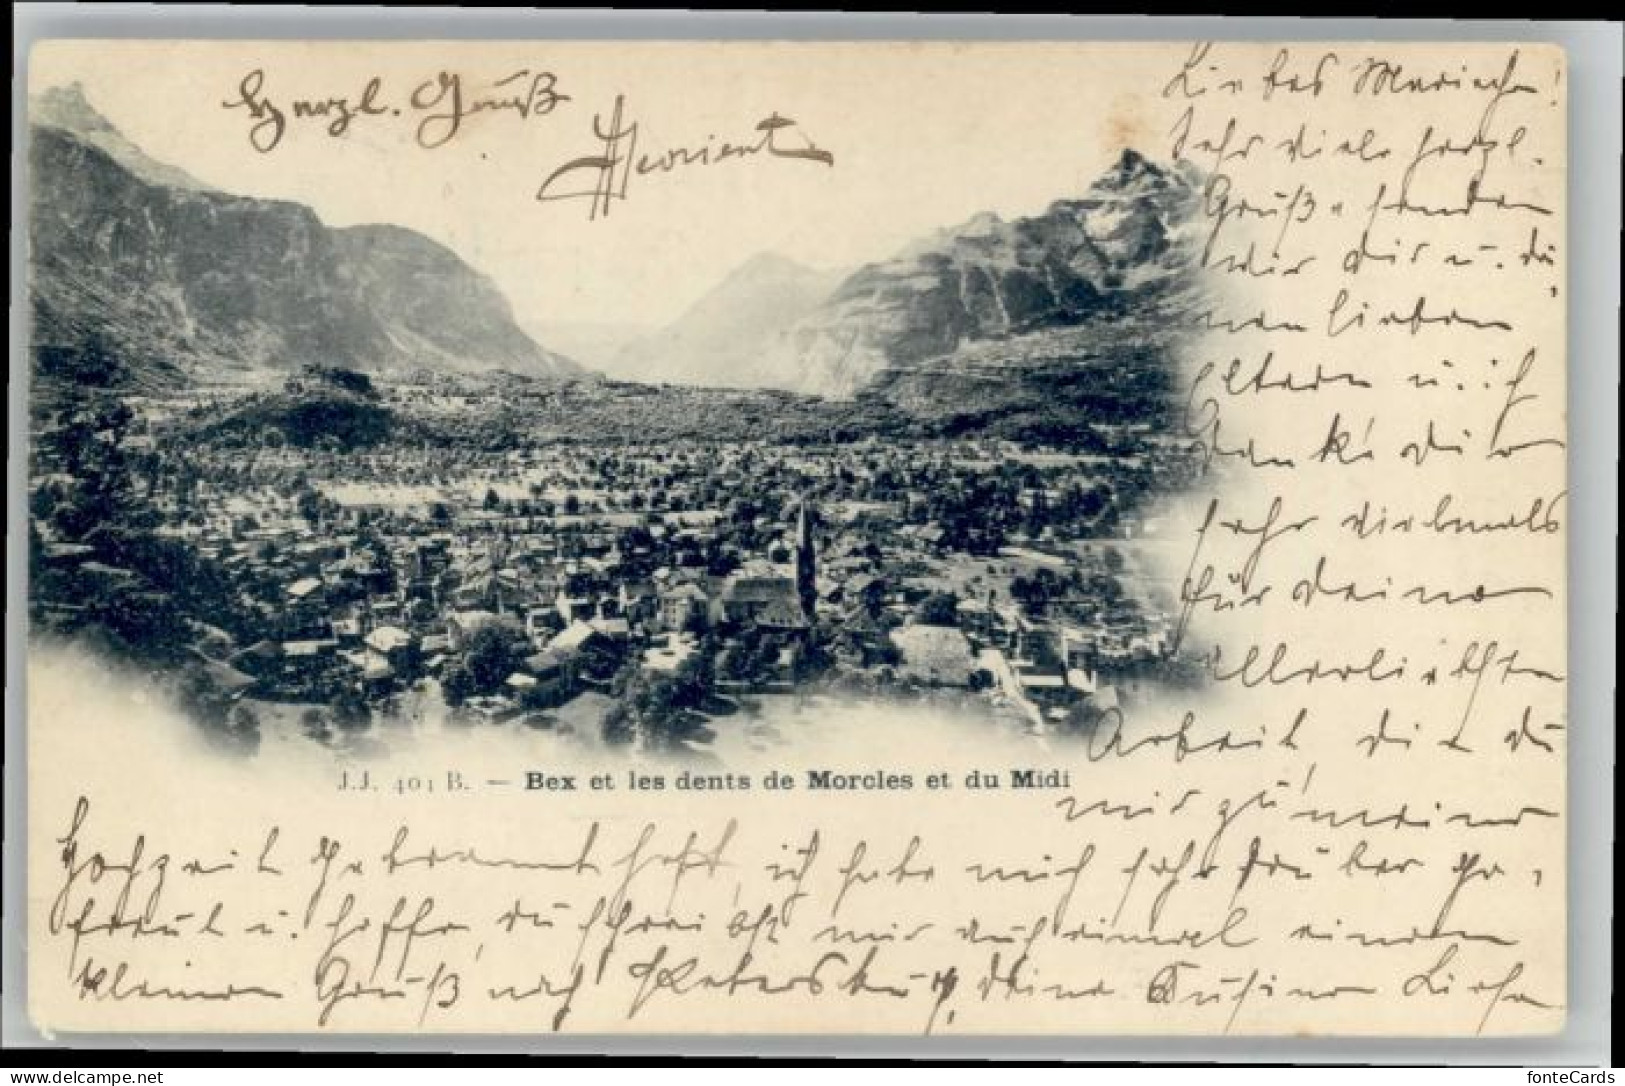 Herzl. Gruß
Liebes Mariechen!
Sehr viele herzl.
Grüße senden
wir dir u. dei
nen lieben
Eltern u. ich
danke dir
sehr vielmals
für deine
allerliebste
Arbeit, die du
J.J. 401 B. — Bex et les dents de Morcles et du Midi
mir zu meiner
Hochzeit gebracht hast, ich habe mich sehr darüber ge,
freut u. hoffe, du schreibst mir auch einmal einen
kleinen Gruß nach Petersburg, deine Cousine
fonteCards